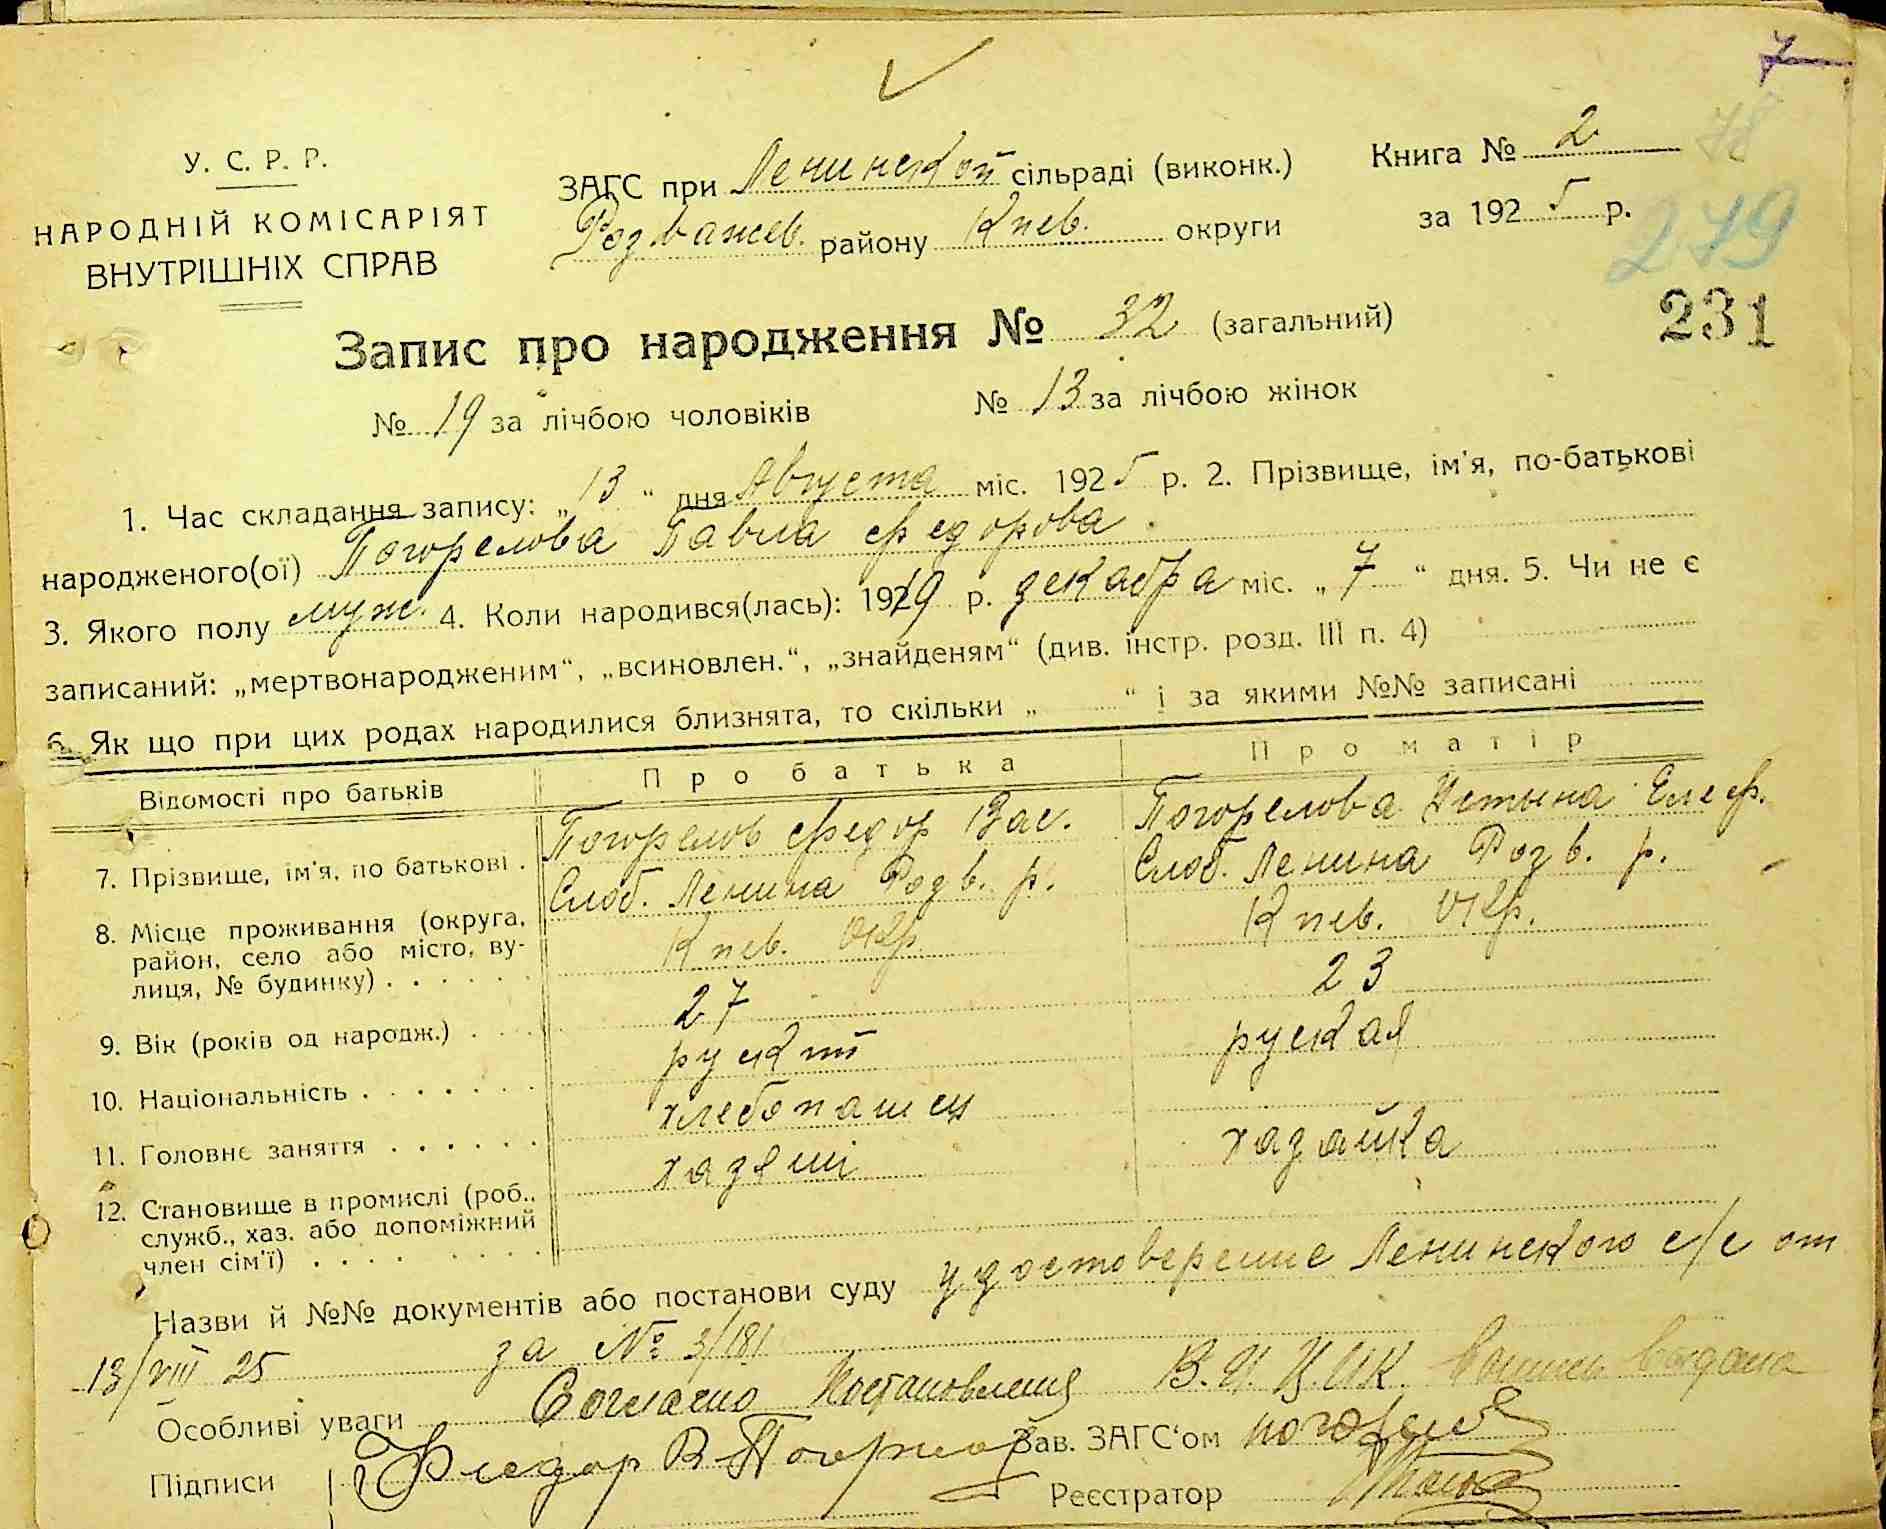 7
78
У. С. Р. Р.
НАРОДНІЙ КОМІСАРІЯТ
ВНУТРІШНІХ СПРАВ
ЗАГС при Ленинской сільраді (виконк.)
Розважев. району Киев. округи
Книга № 2
за 1925 р.
279
231
Запис про народження № 32 (загальний)
№ 19 за лічбою чоловіків № 13 за лічбою жінок
1. Час складання запису: „13“ дня Августа міс. 1925 р. 2. Прізвище, ім'я, по-батькові
народженого(ої) Погорелова Павла Федорова.
3. Якого полу муж. 4. Коли народився(лась): 1919 р. декабра міс. „7“ дня. 5. Чи не є
записаний: „мертвонародженим“, „всиновлен.“, „знайденям“ (див. інстр. розд. III п. 4)
6. Як що при цих родах народилися близнята, то скільки „ “ і за якими №№ записані
Відомості про батьків Про батька Про матір
7. Прізвище, ім'я, по батькові . Погорелов Федор Вас. Погорелова Устына Елеф.
8. Місце проживання (округа, Слоб. Ленина Розв. р. Слоб. Ленина Розв. р.
район, село або місто, ву- Киев. окр. Киев. окр.
лиця, № будинку) . . . . . .
9. Вік (років од народж.) . . . 27 23
10. Національність . . . . . . руский руская
11. Головнє заняття . . . . . . хлебопашец
12. Становище в промислі (роб., хазяин хазайка
служб., хаз. або допоміжний
член сім'ї) . . . . . . . .
Назви й №№ документів або постанови суду удостоверение Ленинского с/с от
13/VIII 25 за № 3/181
Особливі уваги Согласно Постановления В.И.Ц.ИК. выдана
Підписи Федор В Погорелов Зав. ЗАГС'ом
Реєстратор